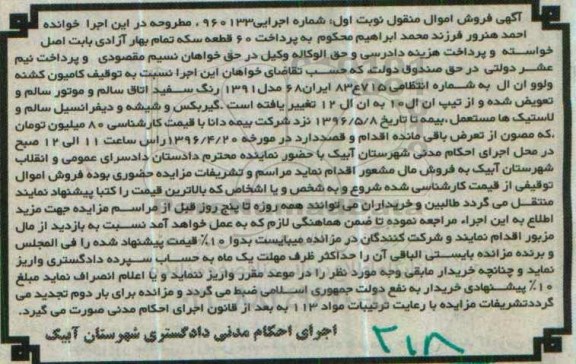 آگهی فروش اموال منقول نوبت اول: شماره اجرایی۹۶۰۱۳۳ ، مطروحه در این اجرا خوانده
احمد هنرور فرزند محمد ابراهیم محکوم به پرداخت ۶۰ قطعه سکه تمام بهار آزادی بابت اصل
خواسته و پرداخت هزینه دادرسی و حق الوکاله وکیل در حق خواهان نسیم مقصودی و پرداخت نیم
عشر دولتی در حق صندوق دولت که حسب تقاضای خواهان این اجرا نسبت به توقیف کامیون کشنه
ولوو ان ال به شماره انتظامی ۷۱۵ع۸۳ ایران۶۸ مدل۱۳۹۱ رنگ سفید اتاق سالم و موتور سالم و
تعویض شده و از تیپ ان ال۱۰ به ان ال ۱۲ تغییر یافته است .گیربکس و شیشه و دیفرانسیل سالم و
لاستیک ها مستعمل،بیمه تا تاریخ ۱۳۹۶/۵/۸ نزد شرکت بیمه دانا با قیمت کارشناسی ۸۰ میلیون تومان
،که مصون از تعرض باقی مانده اقدام و قصددارد در مورخه ۱۳۹۶/۴/۲۰راس ساعت ۱۱ الی ۱۲ صبح
در محل اجرای احکام مدنی شهرستان آبیک با حضور نماینده محترم دادستان دادسرای عمومی و انقلاب
شهرستان آبیک به فروش مال مشعور اقدام نماید مراسم و تشریفات مزایده حضوری بوده فروش اموال
توقیفی از قیمت کارشناسی شده شروع و به شخص و یا اشخاص که بالاترین قیمت را کتبا پیشنهاد نمایند
منتقل می گردد طالبین و خریداران می توانند همه روزه تا پنج روز قبل از مراسم مزایده جهت مزید
اطلاع به این اجراء مراجعه نموده تا ضمن هماهنگی لازم که به عمل خواهد آمد نسبت به بازدید از مال
مزبور اقدام نمایند و شرکت کنندگان در مزانده میبایست بدوا ۱۰٪ قیمت پیشنهاد شده را فی المجلس
و برنده مزانده بایستی الباقی آن را حداکثر ظرف مهلت یک ماه به حساب سپرده دادگستری واریز
نماید و چنانچه خریدار مابقی وجه مورد نظر را در موعد مقرر واریز ننماید و یا اعلام انصراف نماید مبلغ
۱۰٪ پیشنهادی خریدار به نفع دولت جمهوری اسلامی ضبط می گردد و مزانده برای بار دوم تجدید می
گرددتشریفات مزایده با رعایت ترتیبات مواد ۱۱۳ به بعد از قانون اجرای احکام مدنی صورت می گیرد.
اجرای احکام مدنی دادگستری شهرستان آبیک
۲۱۸